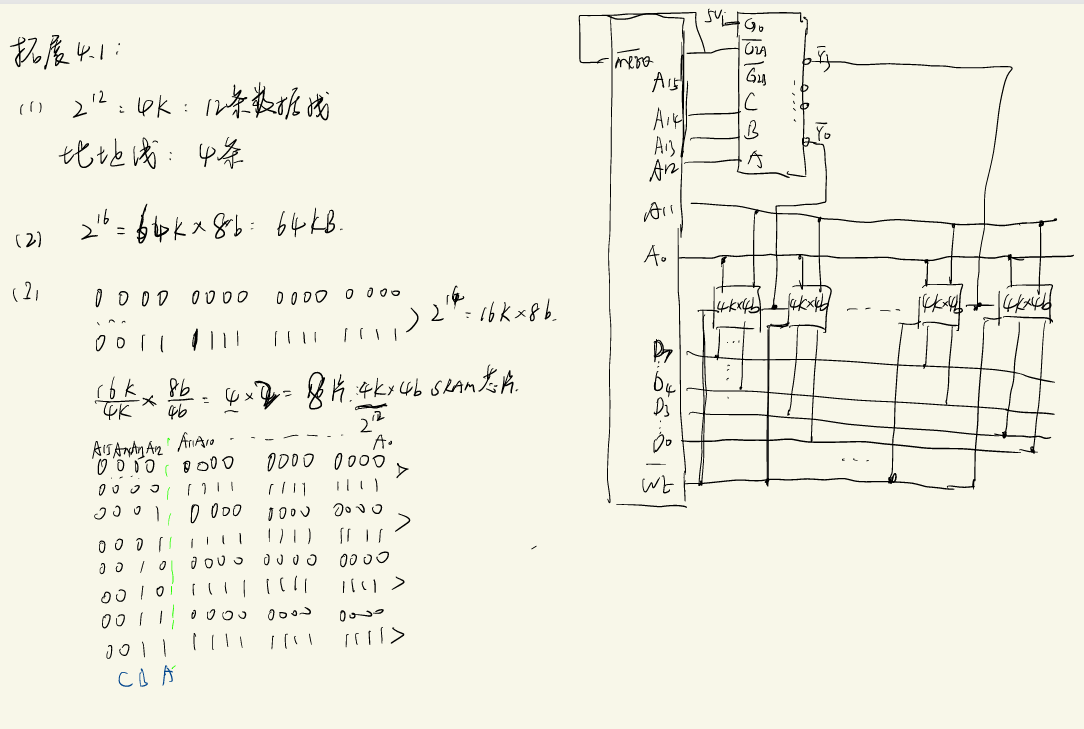 拓展4.1:
(1) 2^12 = 4K: 12条数据线
地址线: 4条
(2) 2^16 = 64K × 8b = 64KB.
0000 0000 0000 0000
...
0011 1111 1111 1111
> 2^14 = 16K×8b.
16K/4K × 8b/4b = 4 × 2 = 8片 4K×4b SRAM芯片.
2^12
A15 A14 A13 A12 A11 A10 ------ A0
0000 0000 0000 0000 >
0000 1111 1111 1111
0001 0000 0000 0000 >
0001 1111 1111 1111
0010 0000 0000 0000
0010 1111 1111 1111 >
0011 0000 0000 0000
0011 1111 1111 1111 >
C B A
5V
G̅2A
G̅2B
C
B
A
Y̅3
Y̅0
A15
A14
A13
A12
A11
A0
4K×4b
4K×4b
4K×4b
4K×4b
D7
D4
D3
D0
W̅E̅